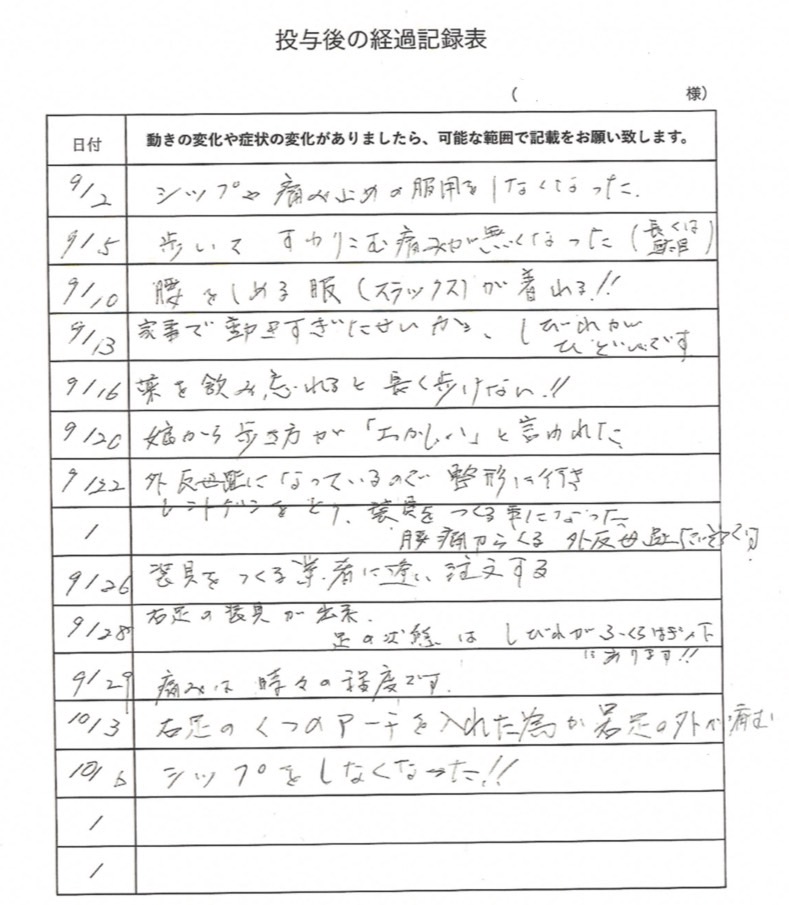 投与後の経過記録表
( 様)
日付 動きの変化や症状の変化がありましたら、可能な範囲で記載をお願い致します。
9/2 シップや痛み止めの服用をしなくなった.
9/5 歩いて すわりこむ痛みが無くなった (長くは駄目)
9/10 腰をしめる服 (スラックス)が着れる!!
9/13 家事で動きすぎたせいか、しびれが
ひどいです
9/16 薬を飲み忘れると長く歩けない!!
9/20 娘から歩き方が「おかしい」と言われた
9/22 外反母趾になっているので 整形に行き
レントゲンをとり、装具をつくる事になった
/ 腰痛からくる 外反母趾
9/26 装具をつくる業者に逢い注文する
9/28 右足の装具が出来.
足の状態は しびれがふくらはぎ下
にあります!!
9/29 痛みは 時々の程度です.
10/3 右足のくつのアーチを入れた為か 右足の外が痛む
10/6 シップをしなくなった!!
/
/